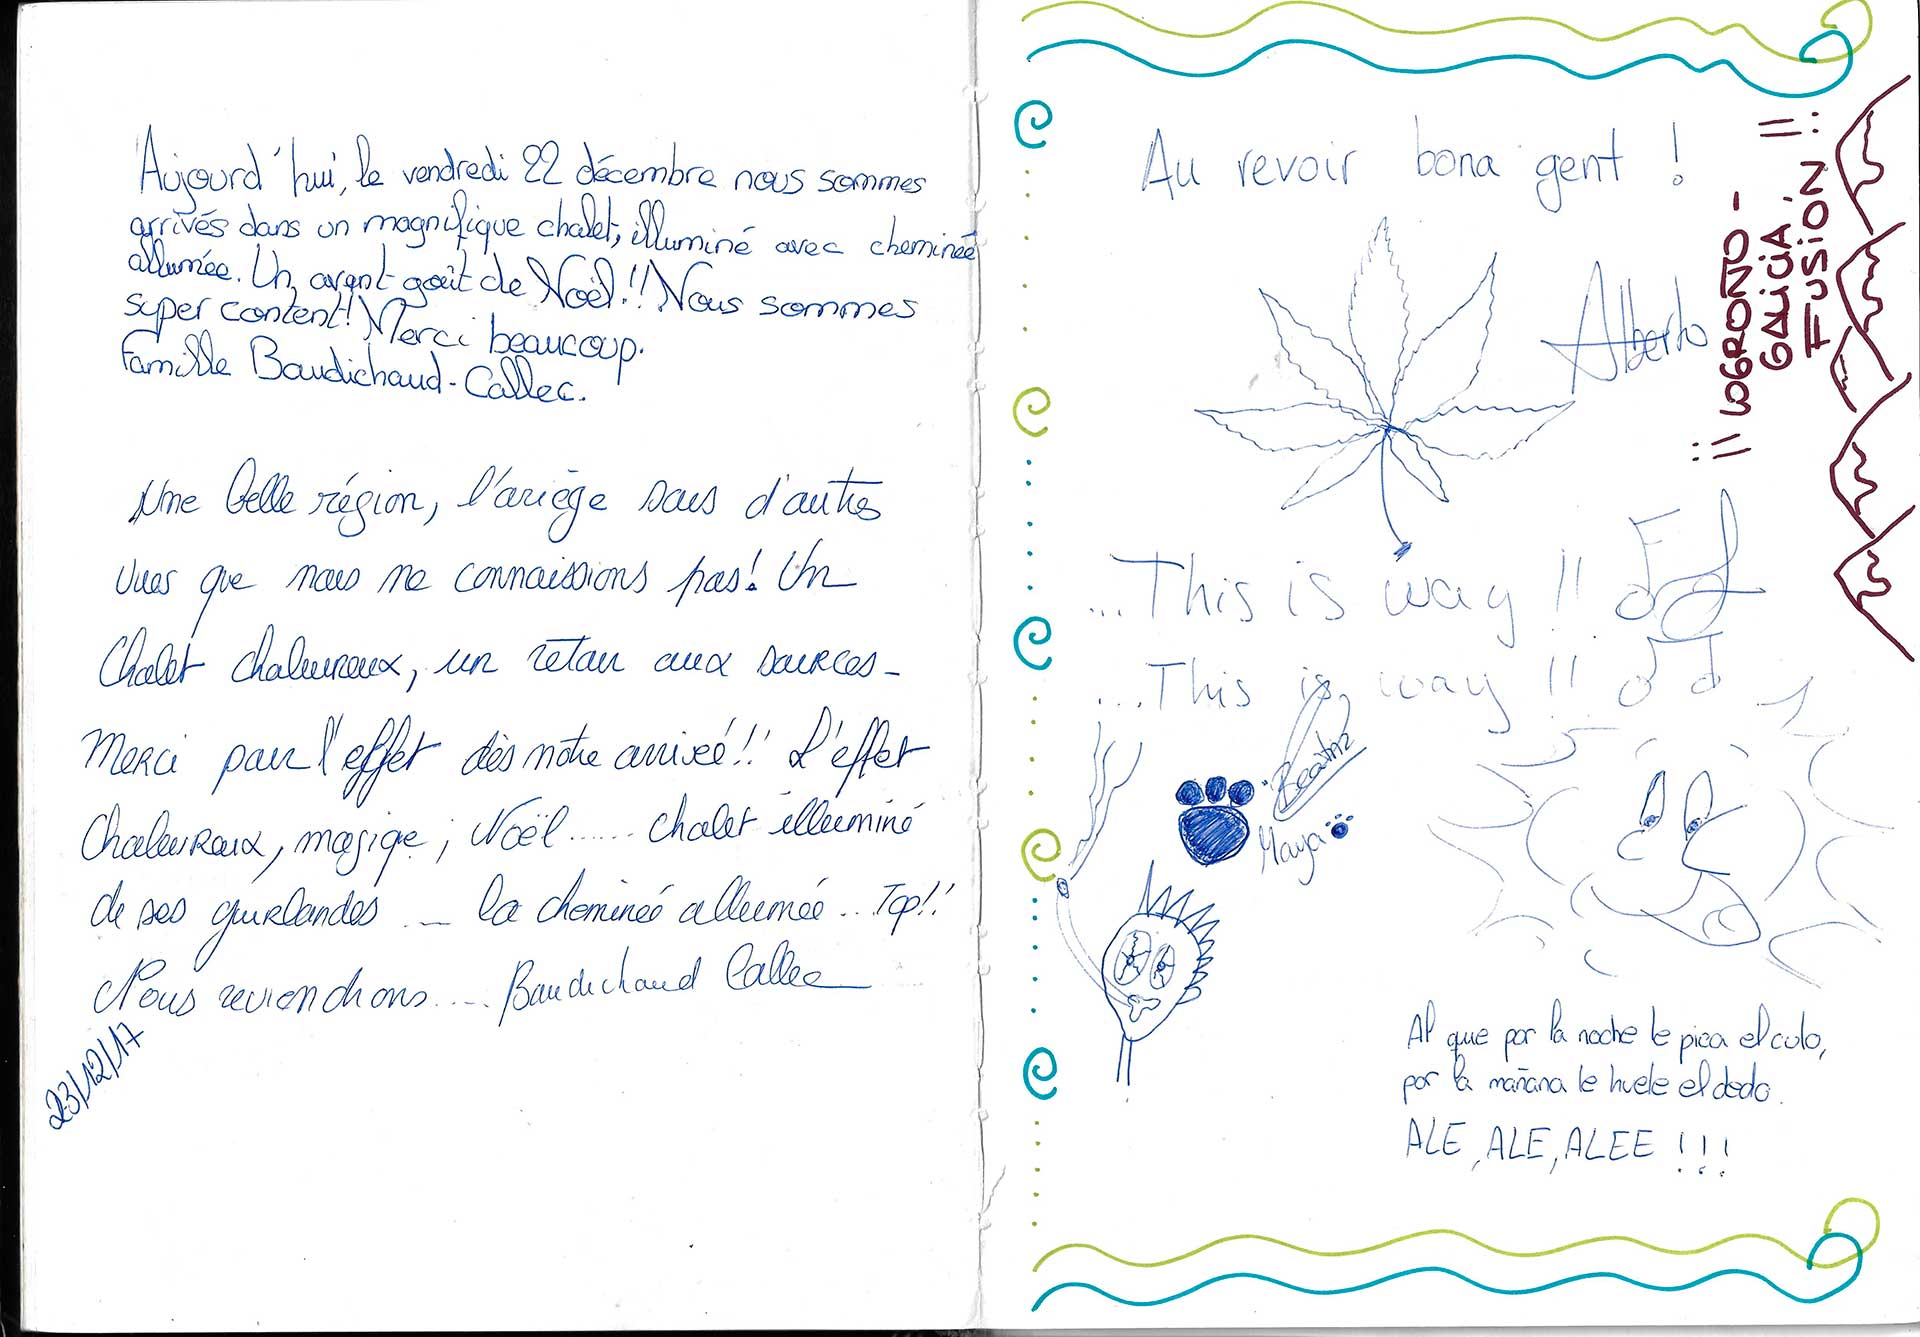 Aujourd'hui, le vendredi 22 décembre nous sommes
arrivés dans un magnifique chalet, illuminé avec cheminée
allumée. Un avant goût de Noël!! Nous sommes
super content! Merci beaucoup.
Famille Baudichaud-Callec.
Une belle région, l'ariège sous d'autres
vues que nous ne connaissions pas! Un
Chalet chaleureux, un retour aux sources-
Merci pour l'effet dès notre arrivée!! L'effet
Chaleureux, magique, Noël...... chalet illuminé
de ses guirlandes ... la cheminée allumée... Top!!
Nous reviendrons.... Baudichaud Callec
23/12/17
Au revoir bona gent !
Alberto
¡¡ LOGROÑO -
GALICIA, !!
FUSIÓN !!
...This is way !!
...This is way !!
"Beatriz
Maya
Al que por la noche le pica el culo,
por la mañana le huele el dedo.
ALE, ALE, ALEE !!!